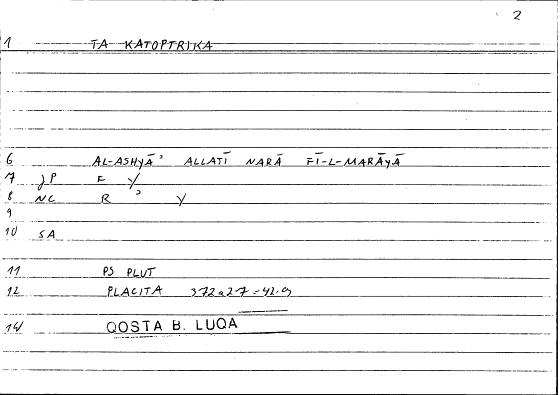 2
1 TA KATOPTRIKA
6 AL-ASHYĀ' ALLATĪ NARĀ FĪ-L-MARĀYĀ
7 JP F Y
8 NC R ' Y
9
10 SA
11 PS PLUT
12 PLACITA 372a27-42.9
14 QOSTA B. LUQA